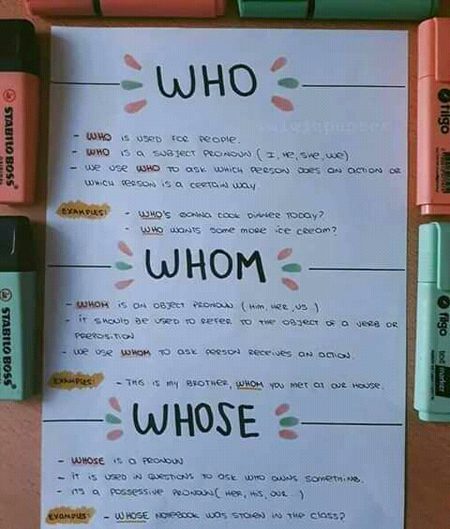 WHO
- WHO IS USED FOR PEOPLE.
- WHO IS A SUBJECT PRONOUN ( I, HE, SHE, WE)
- WE USE WHO TO ASK WHICH PERSON DOES AN ACTION OR
WHICH PERSON IS A CERTAIN WAY.
EXAMPLES: - WHO'S GONNA COOK DINNER TODAY?
- WHO WANTS SOME MORE ICE CREAM?
WHOM
- WHOM IS AN OBJECT PRONOUN ( HIM, HER, US )
- IT SHOULD BE USED TO REFER TO THE OBJECT OF A VERB OR
PREPOSITION
- WE USE WHOM TO ASK PERSON RECEIVES AN ACTION.
EXAMPLES: - THIS IS MY BROTHER, WHOM YOU MET AT OUR HOUSE.
WHOSE
- WHOSE IS A PRONOUN
- IT IS USED IN QUESTIONS TO ASK WHO OWNS SOMETHING.
- ITS A POSSESSIVE PRONOUN ( HER, HIS, OUR )
EXAMPLES: - WHOSE NOTEBOOK WAS STOLEN IN THE CLASS?
STABILO BOSS
STABILO BOSS
fligo
fligo
text marker